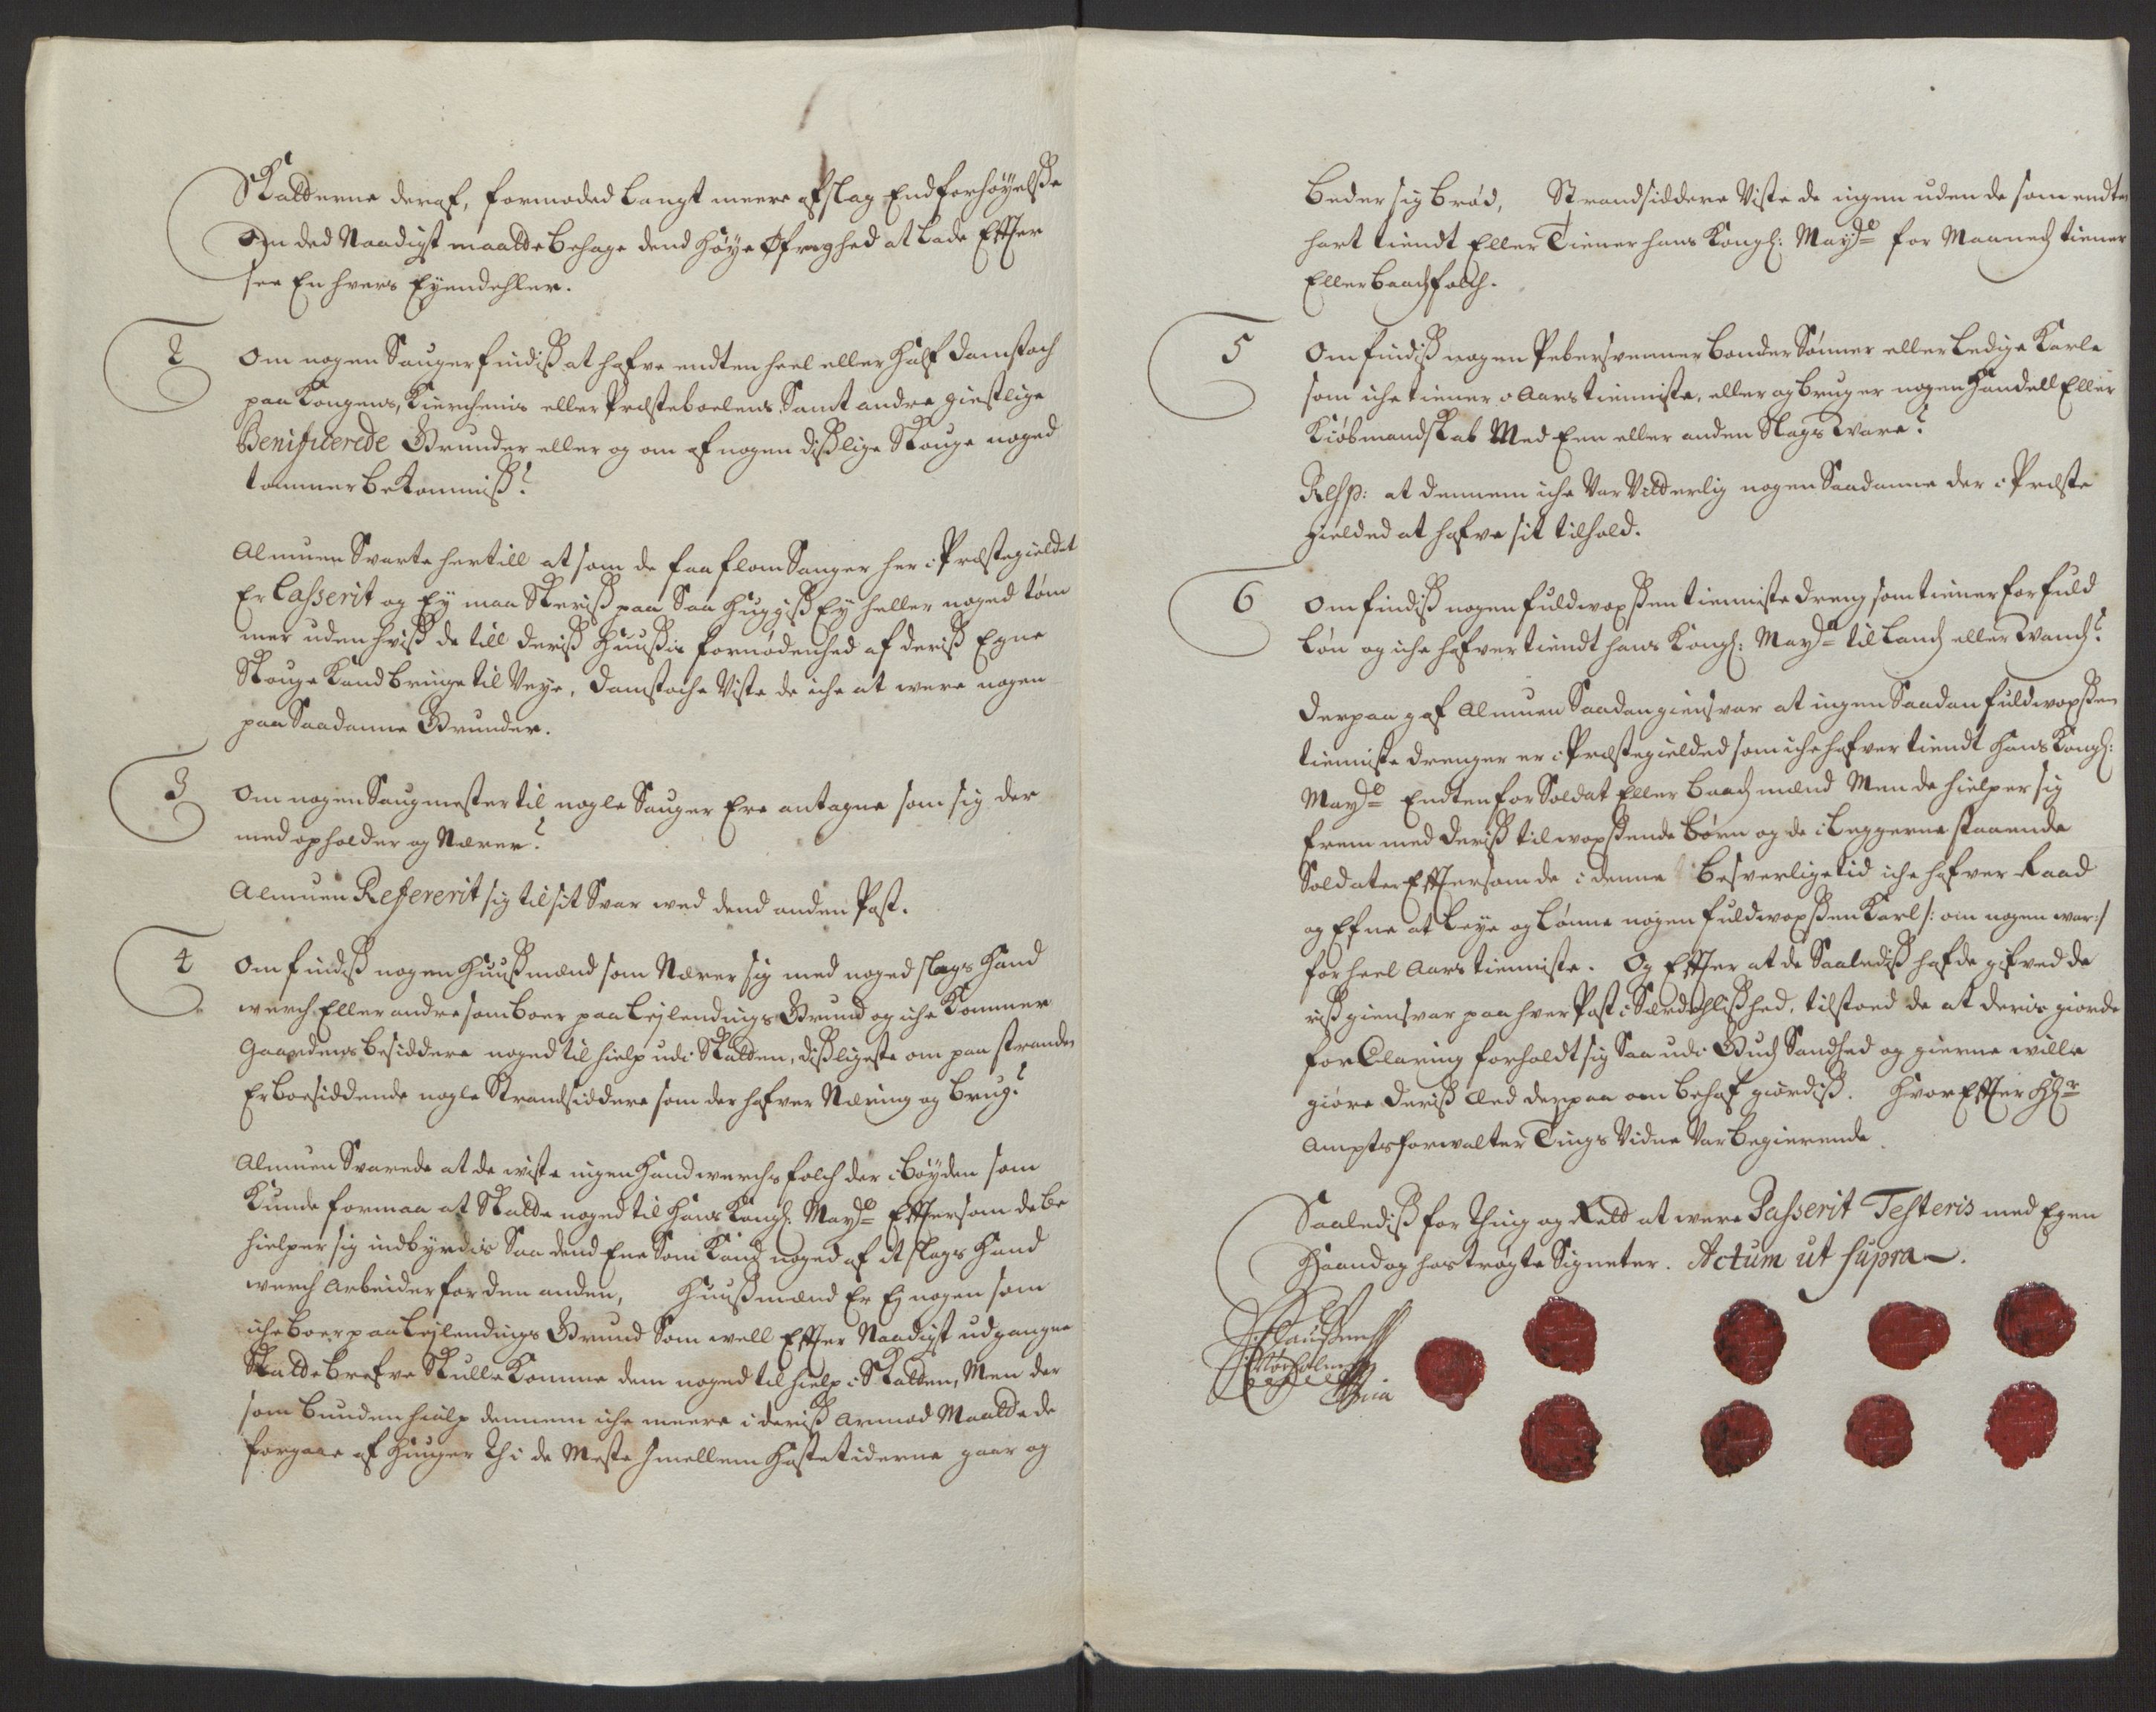 Skatterne deraf, formoded langt meere afslag End forhøyelse
Om ded Naadigst maatte behage dend høye Øfrighed at lade Efter
see En hvers Eyendehler.
2 Om nogen Sauger findiß at hafve endten heel eller half damstoch
paa Kongens, Kierchenis eller Præsteboelens Samt andre giestlige
Benificerede Grunder eller og om af nogen dißlige Skouge noged
tømmer bekommiß?
Almuen Svarte hertill at som de faa flom Sauger her i Præstegieldet
Er Casserit og Ey maa Skæriß paa Saa huggiß Ey heller noged tøm
mer uden hviß de till deriß huußis fornødenhed af deriß Egne
Skouge Kand bringe til Veye, damstoche Viste de iche at were nogen
paa Saadanne Grunder.
3 Om nogen Saugmester til nogle Sauger Ere antagne som sig der
med opholder og Nærer?
Almuen Refererit sig til sit Svar wed dend anden Post.
4 Om findiß nogen huußmænd som Nærer sig med noged slags Hand
werch Eller andre som boer paa Leylendings Grund og iche Kommer
Gaardens besiddere noged til hielp udi Skatten, dißligeste om paa stranden
Er boesiddende nogle Strandsiddere som der hafver Næring og brug?
Almuen Svarede at de wiste ingen Handwerchs folch der i bøyden som
Kunde formaa at Skatte noged til Hans Kongl: Mayt Eftersom de be
hielper sig indbyrdis Saa dend Ene Som Kand noged af it slags Hand
werch Arbeider for den anden, Huußmænd Er Ej nogen som
iche boer paa Leylendings Grund Som well Efter Naadigst udgangne
Skattebrefve Skulle Komme dem noged til hielp i Skatten, Men der
som bunden hialp dennem iche meere i deriß Armod Maatte de
forgaae af Hunger Thi de Meste Imellem Høste tiderne gaar og
beder sig brød, Strandsiddere Viste de ingen uden de som endten
hart tiendt Eller Tiener hans Kongl: Mayt for Maaneds tiener
Eller baadsfolch.
5 Om findiß nogen Pebersvenner bonder Sønner eller ledige Karle
som iche tiener Aars tienniste, eller og bruger nogen Handell Eller
Kiøbmandskab Med Een eller anden Slags Ware?
Resp: at dennem iche Var Vitterlig nogen Saadanne der i Præste
gielded at hafve sit tilhold.
6 Om findiß nogen fuldvoxßen tienniste dreng som tiener for fuld
Løn og iche hafver tiendt hans Kongl: Mayt til Land eller Wand?
Derpaa gaf Almuen Saadan giensvar at ingen Saadan fuldvoxßen
tienniste drenger er i Præstegielded som iche hafver tiendt Hans Kongl:
Mayt Endten for Soldat Eller baadsmænd Men de hielper sig
frem med deriß tilvoxßende børn og de i Leggerne staaende
Soldater Eftersom de i denne besverlige tid iche hafver Raad
og Efne at leye og Lønne nogen fuldvoxßen Karl /: om nogen war :/
for heel Aars tienniste. Og Efter at de Saalediß hafde gifved de
riß giensvar paa hver Post i Særdehlißhed, tilstoed de at deris giorde
forClaring forholdt sig Saa udi Guds Sandhed og gierne wille
giøre deriß Eed derpaa om behof giørdiß. Hvor Efter Hr
Amptsforwalter Tings Vidne Var begierende.
Saalediß for Thing og Rett at were Passerit Testeris med Egen
Haand og hostrøgte Signeter. Actum ut supra.